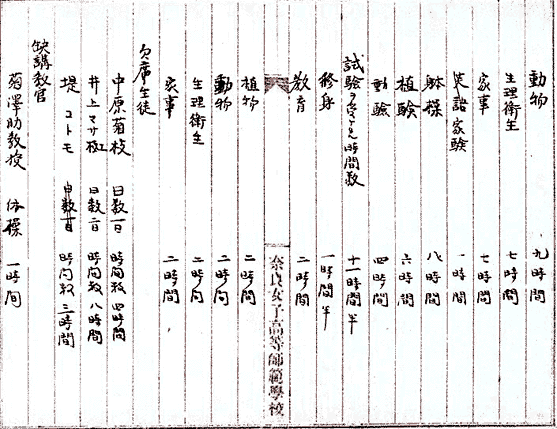 動物 九時間
生理衛生 七時間
家事 七時間
英語 家験 一時間
躰操 八時間
植験 六時間
動験 四時間
試験ヲ受ケタル時間数 十一時間半
修身 一時間半
教育 二時間
奈良女子高等師範學校
植物 二時間
動物 二時間
生理衛生 二時間
家事 二時間
欠席生徒
中原菊枝 日数一日 時間数 四時間
井上マサ極 日数二日 時間数 八時間
堤 コトモ 時間数 三時間
缺講教官
菊澤助教授 体操 一時間